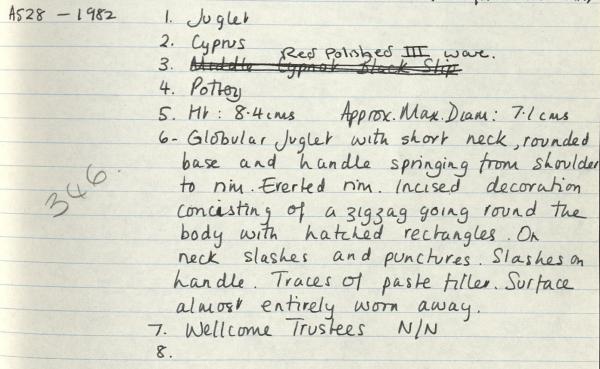 AS28 - 1982
1. Juglet
2. Cyprus
Red Polished III ware.
3. Middle Cypriot Black Slip
4. Pottery
5. Ht: 8.4cms Approx. Max. Diam: 7.1cms
6- Globular Juglet with short neck, rounded
base and handle springing from shoulder
to rim. Everted rim. Incised decoration
concisting of a zigzag going round the
body with hatched rectangles. On
neck slashes and punctures. Slashes on
handle. Traces of paste filler. Surface
almost entirely worn away.
346.
7. Wellcome Trustees N/N
8.